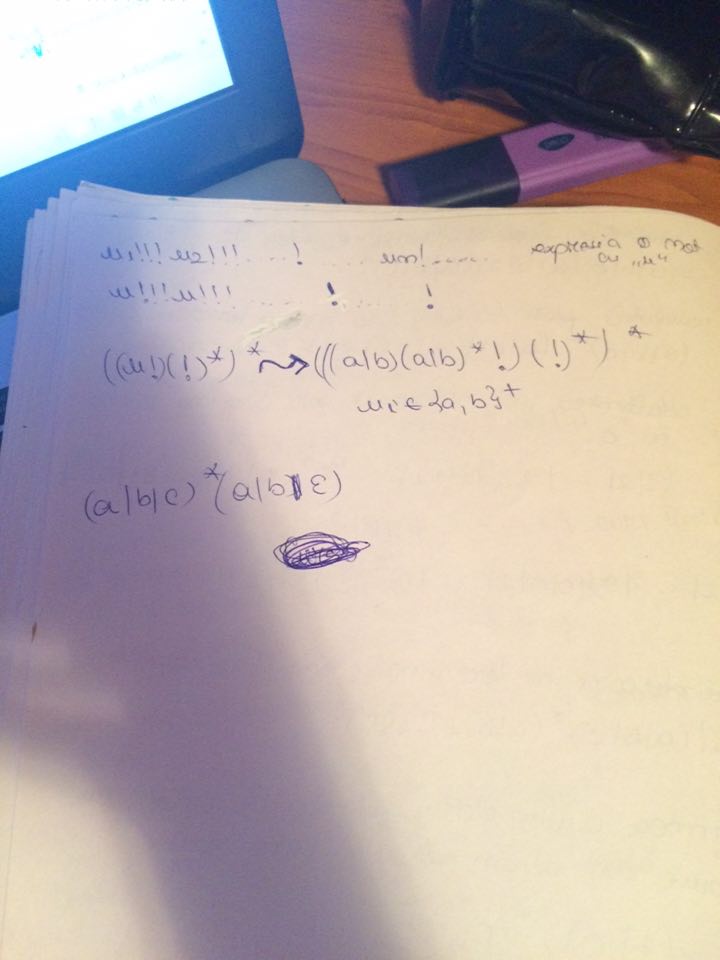 u1!!! u2!!! ....! ..... un!...... expresia o not
u!!!u!!! .....! .....! cu "u"
((u!)(!)*)* ⤳ (((a|b)(a|b)*!)(!)*)*
ui ∈ {a,b}+
(a|b|c)*(a|b|ε)